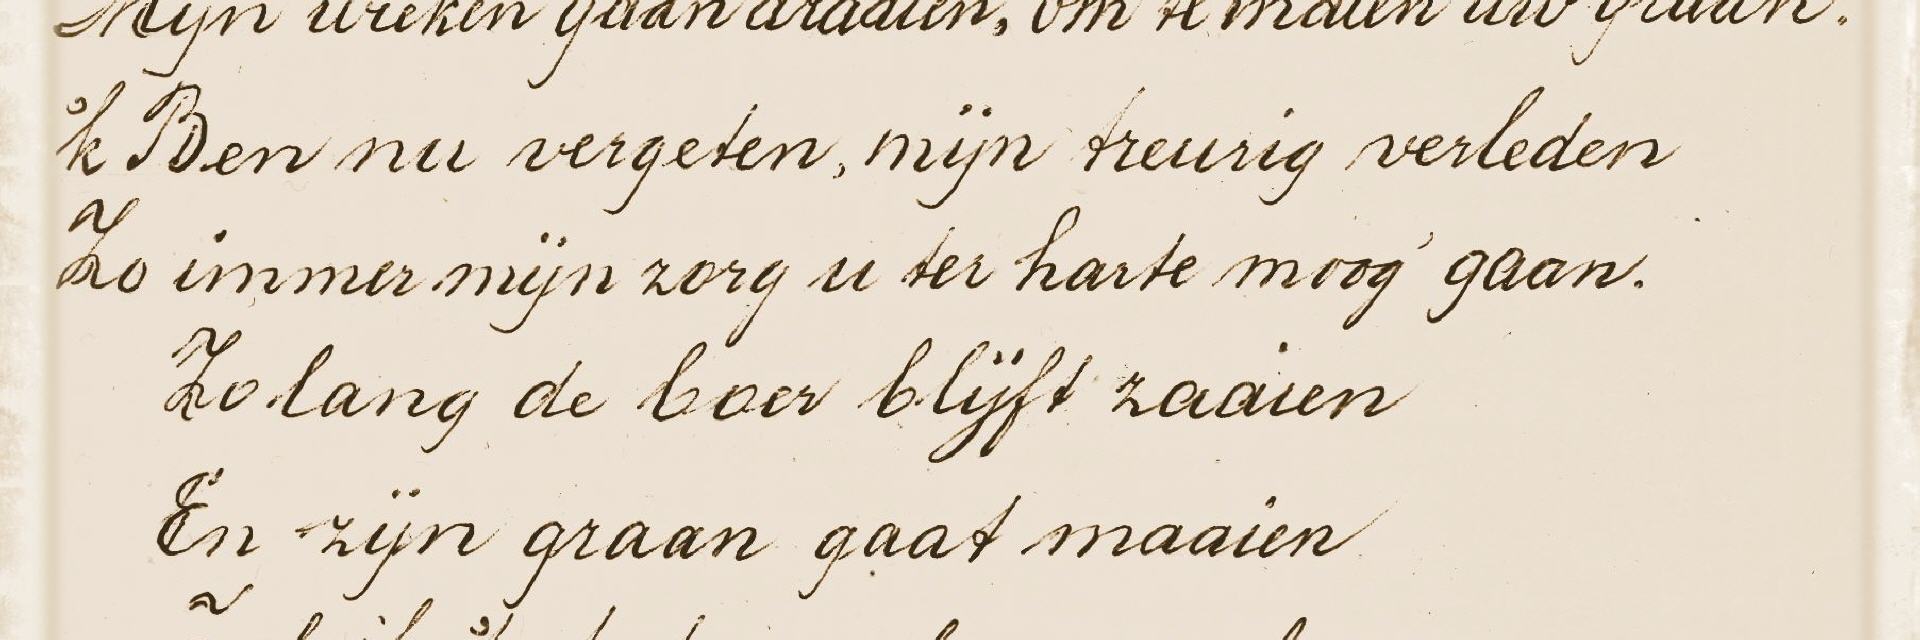 Mijn wieken gaan draaien, om te malen uw graan.
'k Ben nu vergeten, mijn treurig verleden
Zo immer mijn zorg u ter harte moog' gaan.
Zolang de boer blijft zaaien
En zijn graan gaat maaien